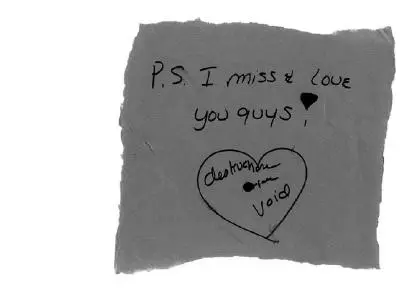 P.S. I miss & love
you guys!
void